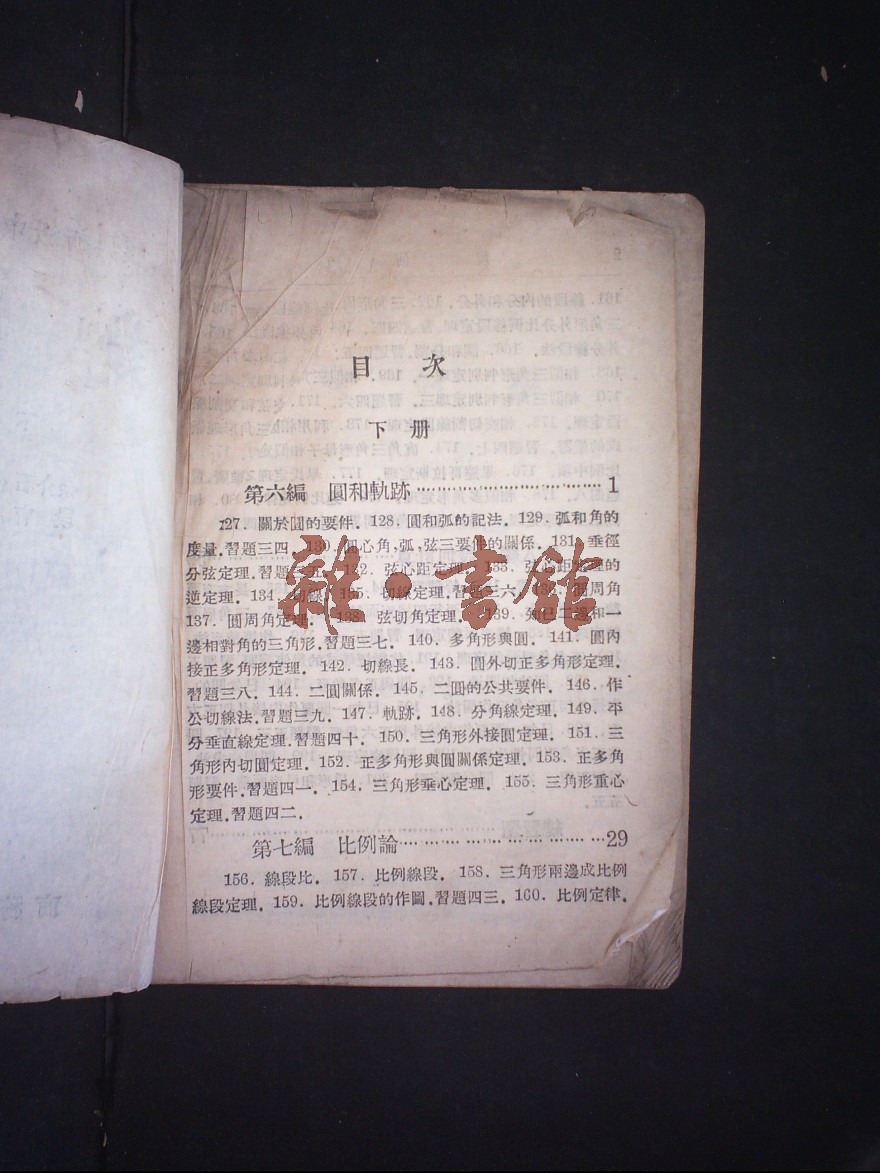 目 次
下 册
第六編 圓和軌跡 1
127. 關於圓的要件. 128. 圓和弧的記法. 129. 弧和角的
度量.習題三四. 130. 圓心角,弧,弦三要件的關係. 131. 垂徑
分弦定理.習題三五. 132. 弦心距定理. 133. 弦心距定理的
逆定理. 134. 切線. 135. 切線定理.習題三六. 136. 圓周角
137. 圓周角定理. 138. 弦切角定理. 139. 知已二邊和一
邊相對角的三角形.習題三七. 140. 多角形與圓. 141. 圓內
接正多角形定理. 142. 切線長. 143. 圓外切正多角形定理.
習題三八. 144. 二圓關係. 145. 二圓的公共要件. 146. 作
公切線法.習題三九. 147. 軌跡. 148. 分角線定理. 149. 平
分垂直線定理.習題四十. 150. 三角形外接圓定理. 151. 三
角形內切圓定理. 152. 正多角形與圓關係定理. 153. 正多角
形要件.習題四一. 154. 三角形垂心定理. 155. 三角形重心
定理.習題四二.
第七編 比例論 29
156. 線段比. 157. 比例線段. 158. 三角形兩邊成比例
線段定理. 159. 比例線段的作圖.習題四三. 160. 比例定律.
雜·書館